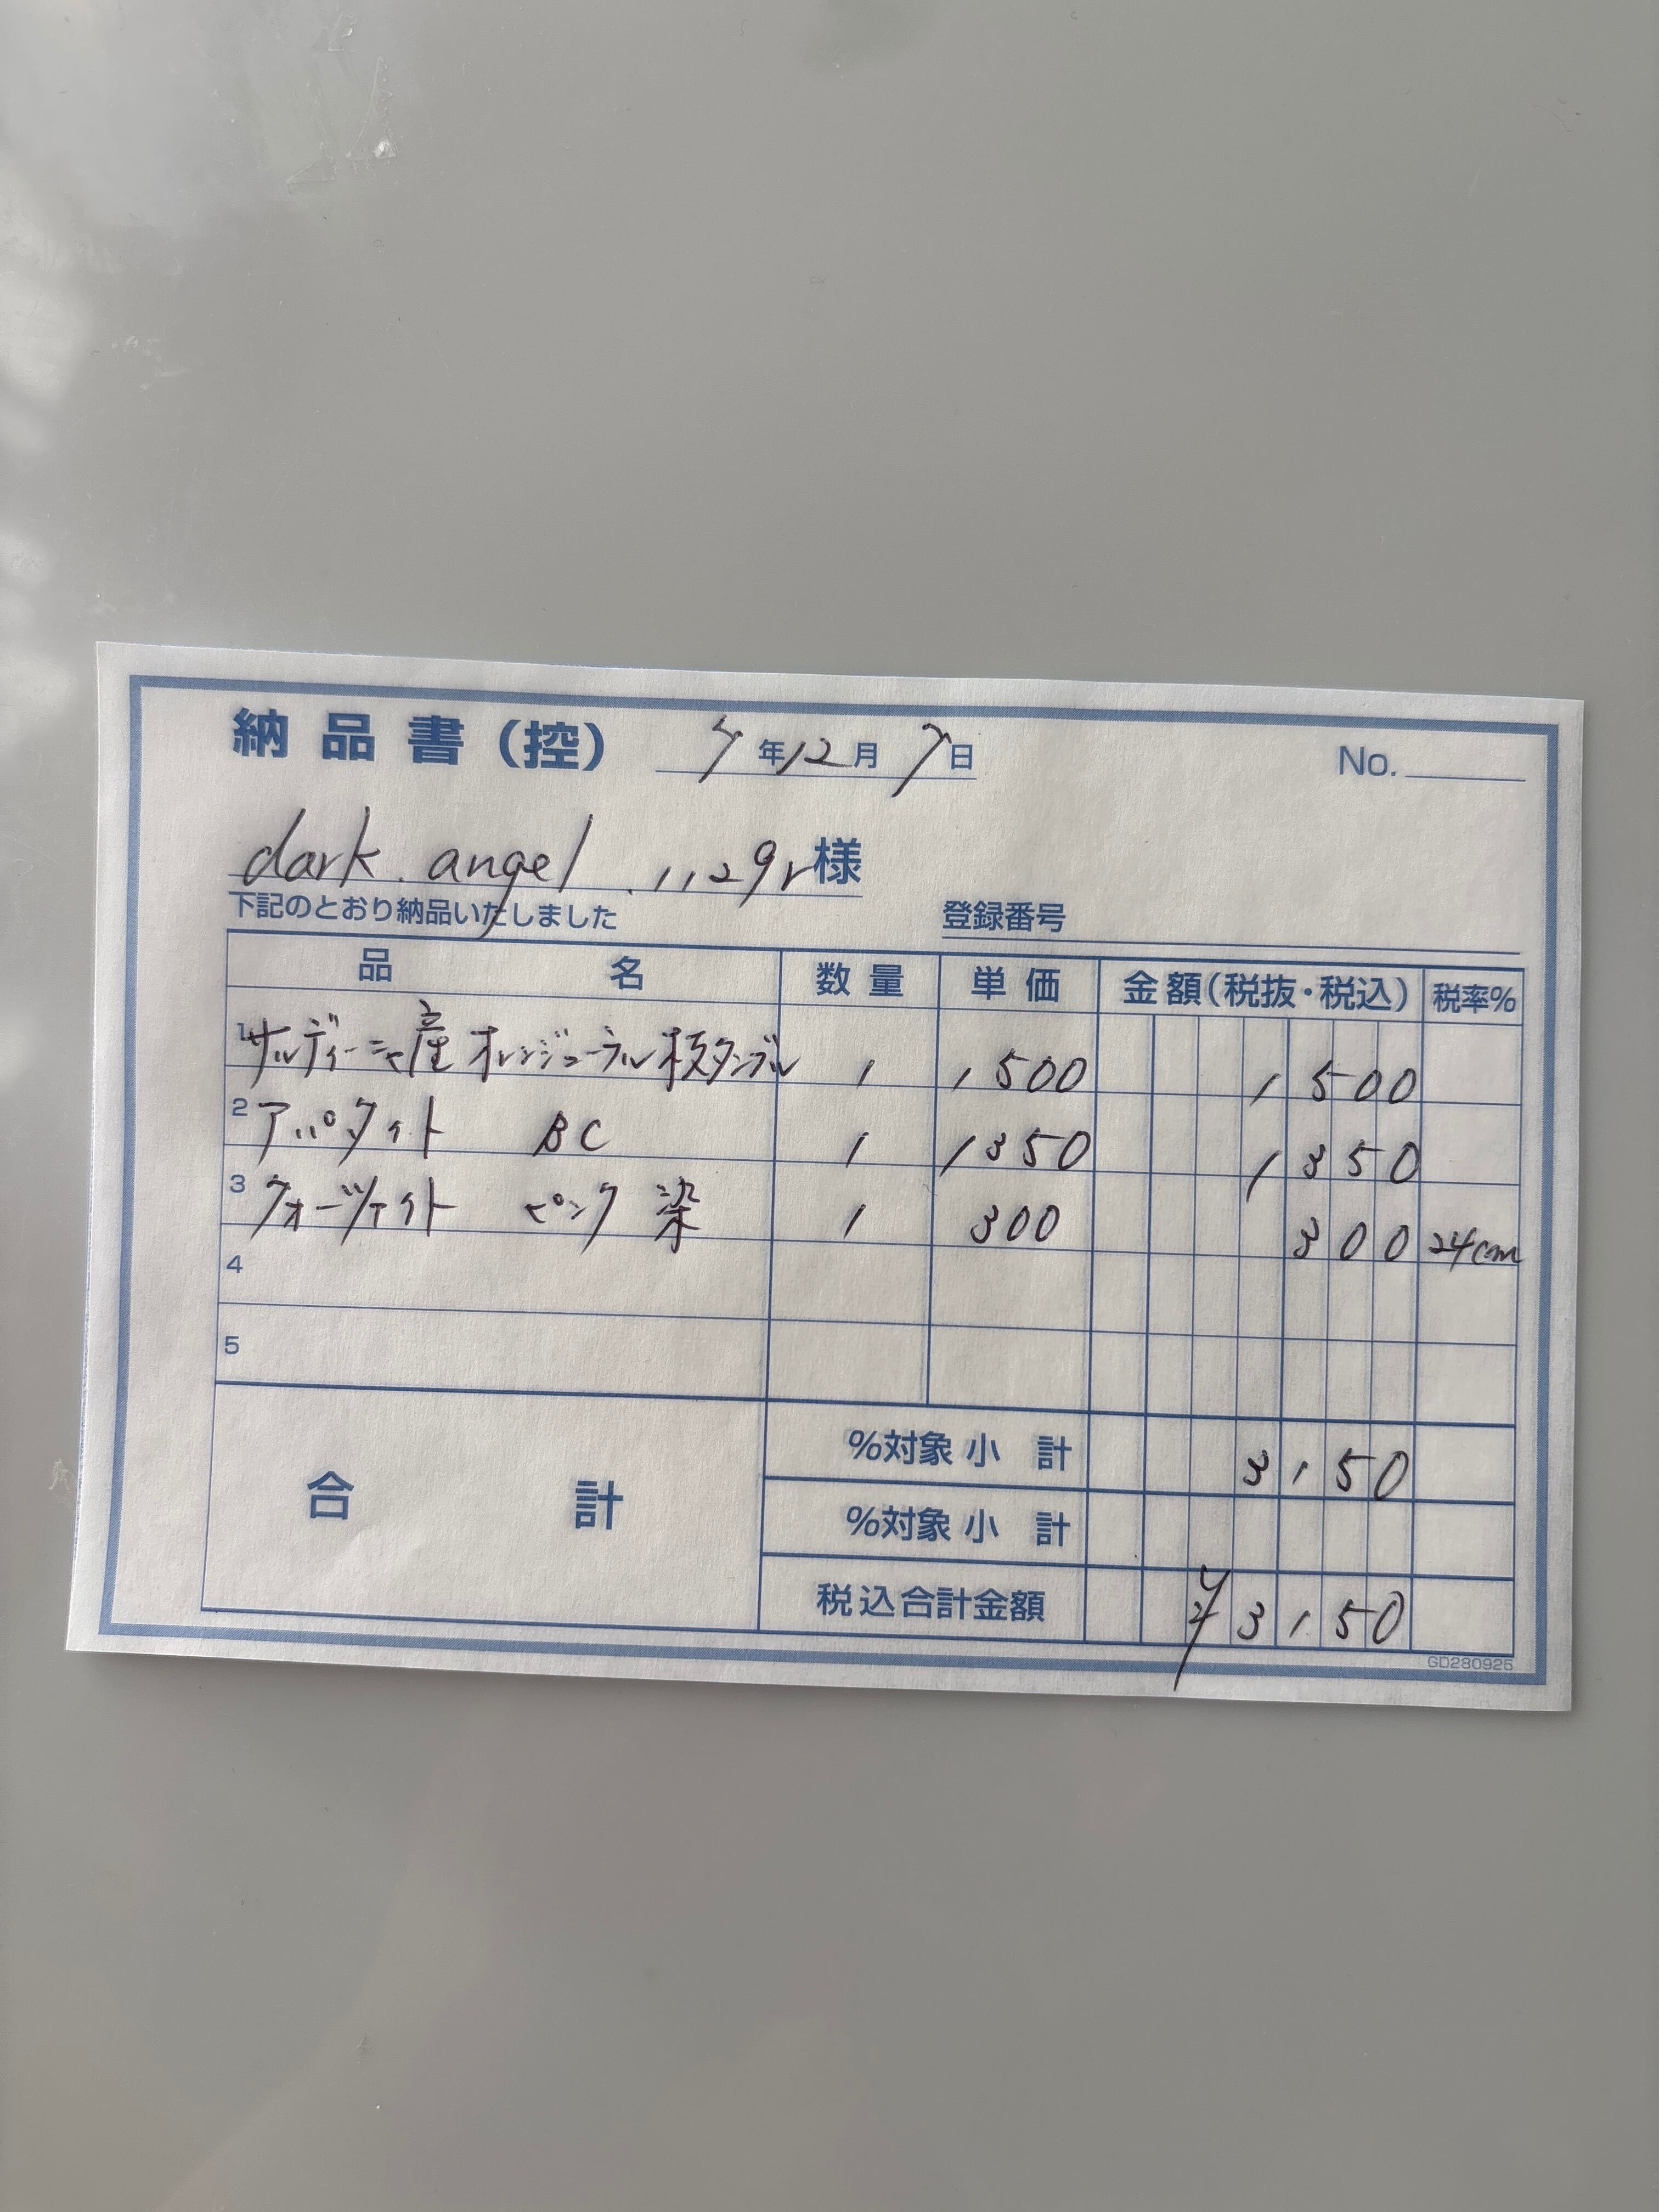 納品書(控) 7年12月7日 No.
dark.angel.1129r様
下記のとおり納品いたしました 登録番号
品名 数量 単価 金額(税抜・税込) 税率%
1 サルディーニャ産オレンジコーラル枝タンブル 1 1500 1500
2 アパタイト BC 1 1350 1350
3 クォーツァイト ピンク染 1 300 300 24cm
4
5
合計 %対象小計 3150
%対象小計
税込合計金額 ¥3150
GD280925